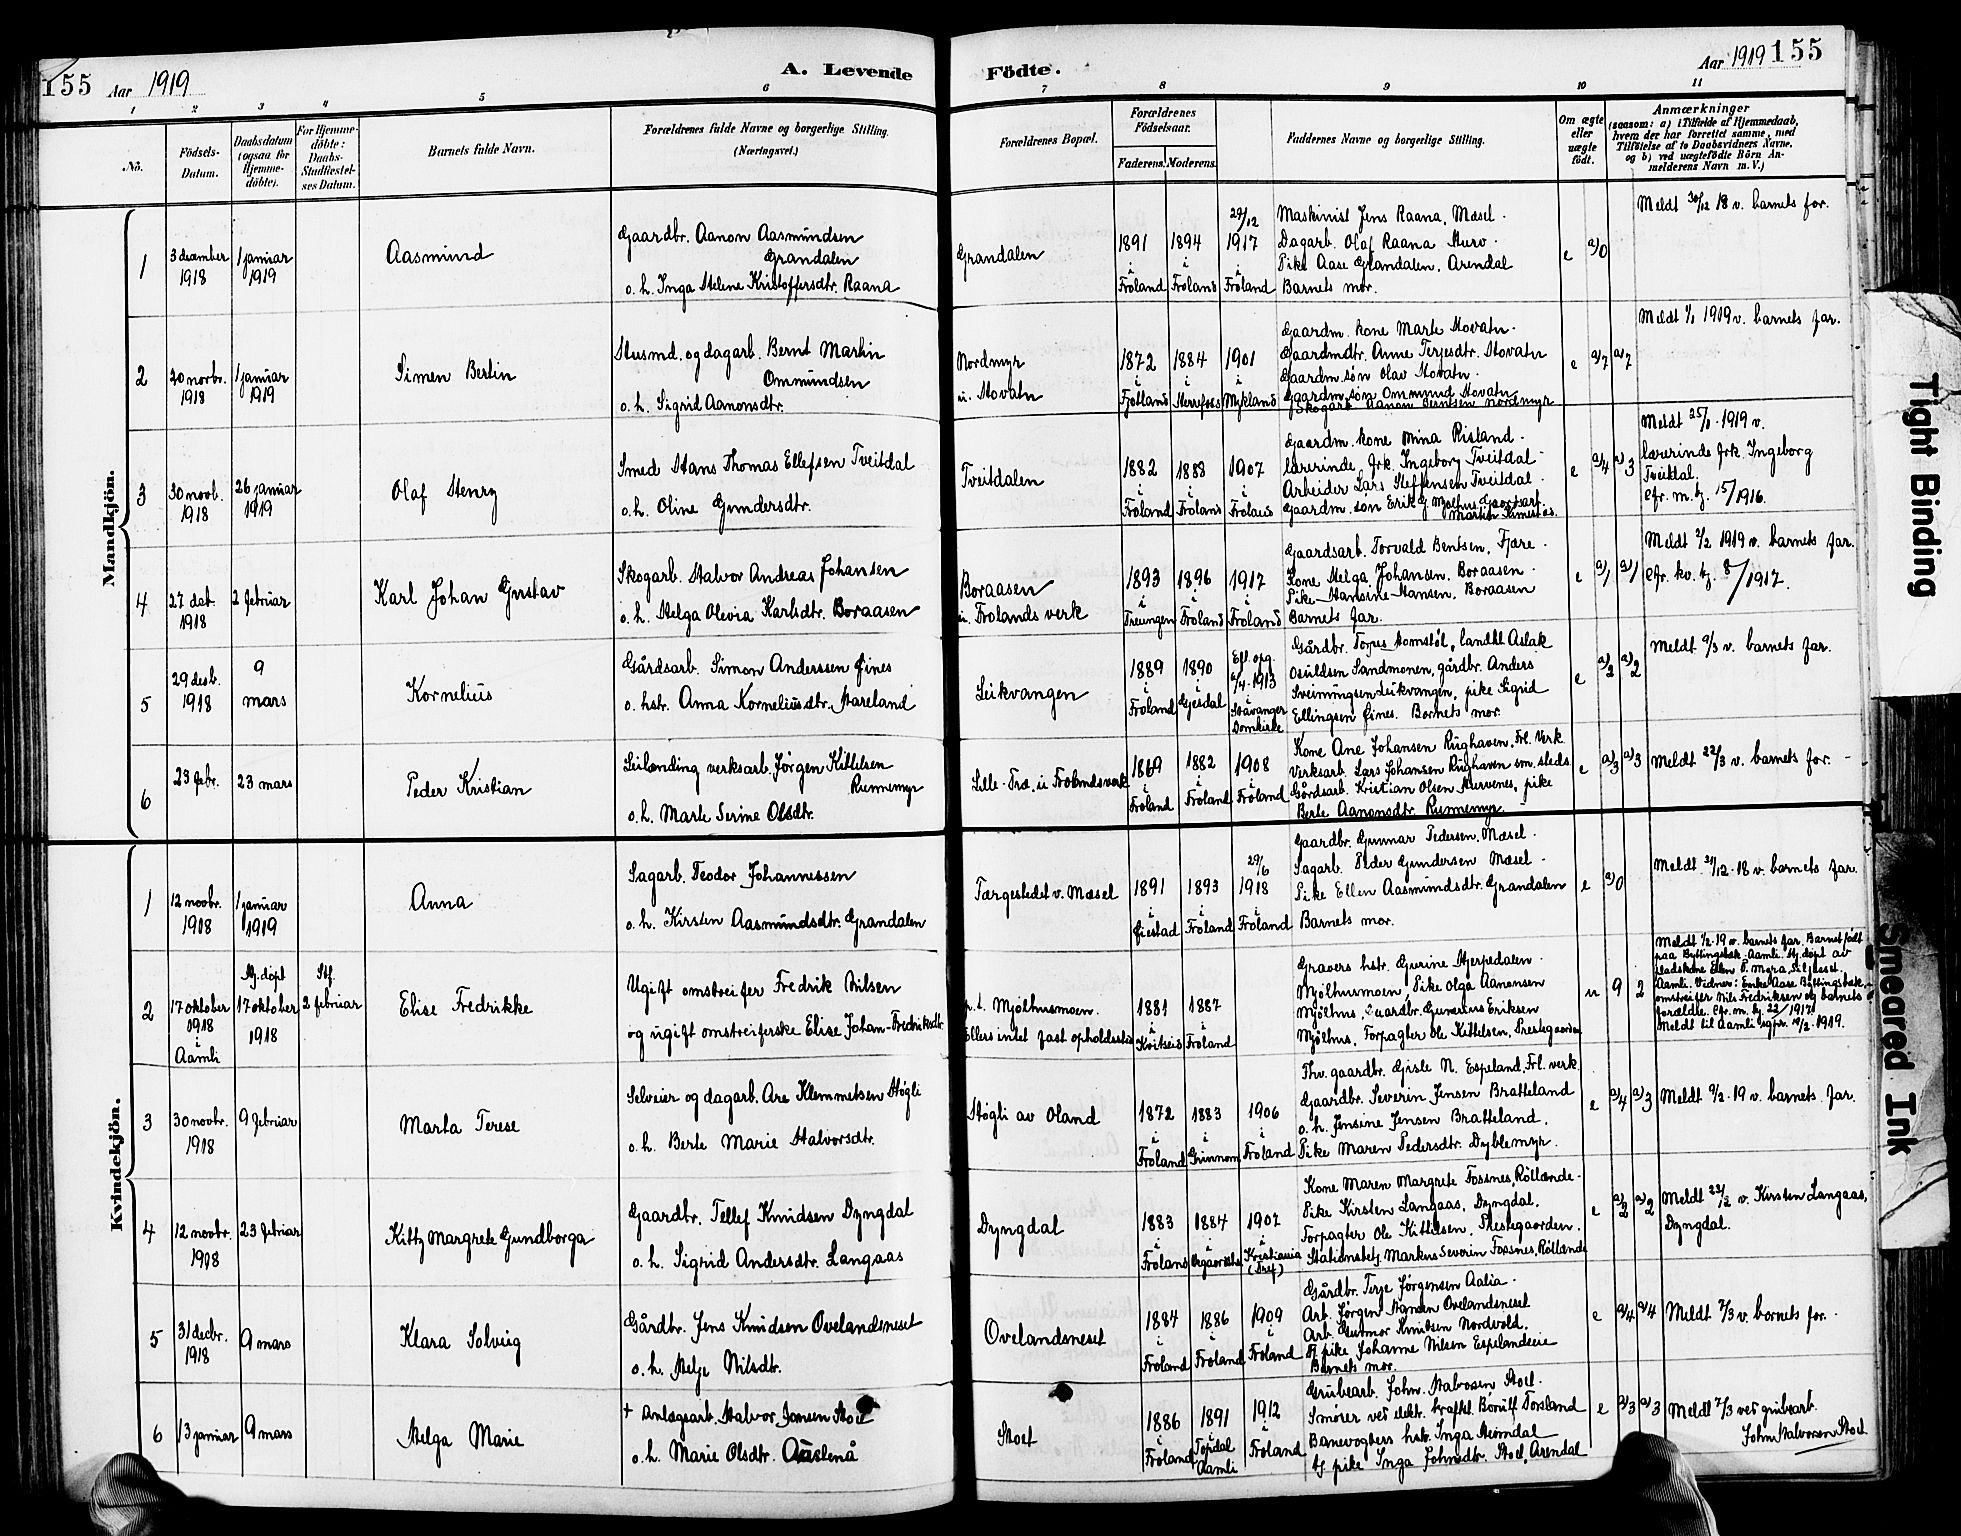 155 Aar 1919
A. Levende
Födte.
Aar 1919 155
1 2 3 4 5 6 7 8 9 10 11
Nö.
Födsels-
Datum.
Daabsdatum
(ogsaa for
Hjemme-
döbte).
For Hjemme-
döbte:
Daabs-
Stadfæstel-
ses Datum.
Barnets fulde Navn.
Forældrenes fulde Navne og borgerlige Stilling.
(Næringsvei.)
Forældrenes Bopæl.
Forældrenes
Födselsaar.
Faderens. Moderens.
Faddernes Navne og borgerlige Stilling.
Om ægte
eller
uægte
født.
Anmærkninger
(saasom: a) i Tilfælde af Hjemmedaab,
hvem der har forrettet samme, med
Tilföielse af to Daabsvidners Navne,
og b) ved uægtefödte Börn An-
melderens Navn m. V.)
Mandkjön.
1
3 december
1918
1 januar
1919
Aasmund
Gaardbr. Aanon Aasmundsen
Grandalen
o. h. Inga Helene Kristoffersdtr. Raana
Grandalen
1891
i
Froland
1894
i
Froland
29/12
1917
i
Froland
Maskinist Jens Raana, Mæsel.
Dagarb. Olaf Raana Hurv.
Pike Aase Grandalen, Arendal
Barnets mor.
e
a/0
Meldt 30/12 18 v. barnets far.
2
20 novbr.
1918
1 januar
1919
Simen Bertin
Husmd. og dagarb. Bernt Martin
Ommundsen
o. h. Sigrid Aanonsdtr.
Nordmyr
u. Hovatn
1872
i
Fjotland
1884
i
Herefoss
1901
i
Mykland
Gaardm. kone Marte Hovatn.
Gaardmdtr. Anne Terjesdtr. Hovatn
Gaardm. søn Olav Hovatn.
Gaardm. søn Ommund Hovatn
Skogarb. Aanon Berntsen Nordmyr
e
a/7 a/7
Meldt 1/1 1919 v. barnets far.
3
30 novb.
1918
26 januar
1919
Olaf Henry
Smed Hans Thomas Ellefsen Tveitdal
o. h. Oline Gundersdtr.
Tveitdalen
1882
i
Froland
1888
i
Froland
1907
i
Froland
Gaardm. kone Mina Risland.
Lærerinde, frk. Ingeborg Tveitdal.
Arbeider Lars Steffensen Tveitdal.
Gaardm. søn Erik G. Mjølhus,
e
a/4 a/3
Meldt 25/1 1919 v.
lærerinde frk. Ingeborg
Tveitdal.
Cfr. m. kj. 15/1916.
4
27 det.
1918
2 februar
Karl Johan Gustav
Skogarb. Halvor Andreas Johansen
o. h. Helga Olevia Karlsdtr. Boraasen
Boraasen
u. Frolands verk
1893
i
Treungen
1896
i
Froland
1917
i
Froland
Gaardsarb. Torvald Bentsen, Fjære.
Kone Helga Johansen, Boraasen.
Pike Hansine Hansen, Boraasen
Barnets far.
e
a/1 a/1
Meldt 2/2 1919 v. barnets far.
Cfr. kv. kj. 8/1917.
5
29 desb.
1918
9
mars
Kornelius
Gårdsarb. Simon Anderssen Fines
o. hstr. Anna Korneliusdtr. Hareland
Leikvangen
1889
i
Froland
1890
i
Gjesdal
1913
i
Stavanger
Domkirke
Gårdbr. Torjus Homstøl, landhl Aslak
Osuldsen Sandmonen, gårdbr. Anders
Sveinungsen Leikvangen, pike Sigrid
Ellingsen Fines. Barnets mor.
e
a/2 a/2
Meldt 9/3 v. barnets far.
6
23 febr.
23 mars
Peder Kristian
Leilænding verksarb. Jørgen Kittelsen
Runnemyr
o. h. Marte Serine Olsdtr.
Lille-Træ, u Frolandsverk
1869
i
Froland
1882
i
Froland
1908
i
Froland
Kone Ane Johansen Rughaven, Frl. Verk
Verksarb. Lars Johansen Rughaven sm. steds
Gårdsarb. Kristian Olsen Hurvenes, pike
Berte Aanonsdtr Runnemyr.
e
a/3 a/3
Meldt 22/3 v. barnets far.
Kvindekjön.
1
12 novbr.
1918
1 januar
1919
Anna
Sagarb. Teodor Johannessen
o. h. Kirsten Aasmundsdtr. Grandalen
Færgestedet v. Mæsel
1891
i
Øiestad
1893
i
Froland
29/6
1918
i
Froland
Gaardbr. Gunnar Pedersen, Mæsel.
Sagarb. Peder Gundersen Mæsel.
Pike Ellen Aasmundsdtr. Grandalen
Barnets mor.
e
a/0
Meldt 31/12 18 v. barnets far.
2
17 oktober
1918
i
Aamli
Hj. døpt
17 oktober
1918
Stf.
2 februar
Elise Fredrikke
Ugift omstreifer Fredrik Nilsen
og ugift omstreiferske Elise Johan-Fredriksdtr.
p. t. Mjølhusmoen.
Ellers intet fast opholdested
1881
i
Kviteseid
1887
i
Froland
Gravers hstr. Gurine Herpedalen.
Mjølhusmoen, Pike Olga Aanonsen
Mjølhus, Gaardbr. Gunerius Eriksen
Mjølhus, Forpagter Ole Kittelsen, Prestegaarden
u
9 2
Meldt 1/2 19 v. barnets far. Barnet født
paa Byttingsbæk, Aamli. Hj. døpt av
Aamli. Vidner: Enke Aase Byttingsbæk,
omstreifer Nils Fredriksen og barnets
forældre. Cfr. m. kj. 22/1917.
Meldt til Aamli sgpr. 10/2 1919.
3
30 novbr.
1918
9 februar
Marta Terese
Selveier og dagarb. Are Klemmetsen Støgli
o. h. Berte Marie Halvorsdtr.
Støgli av Oland
1872
i
Froland
1883
i
Grinnom
1906
i
Froland
Fhv. gaardbr. Gisle N. Espeland, Frl. verk.
Gaardbr. Severin Jensen Bratteland
o. h. Jensine Jensen Bratteland.
Pike Maren Pedersdtr. Dyblemyr.
e
a/4 a/3
Meldt 9/2 19 v. barnets far.
4
12 novbr.
1918
23 februar
Kitty Margrete Gundborga
Gaardbr. Tellef Knudsen Dyngdal
o. h. Sigrid Andersdtr. Langaas
Dyngdal
1883
i
Froland
1884
i
1907
i
Kristiania
(Tref.)
Kone Maren Margrete Fossnes, Røllænde.
Pike Kirsten Langaas, Dyngdal.
Forpagter Ole Kittelsen, Prestegaarden.
Stationsbetj. Markus Severin Fossnes, Røllænde
e
a/2 a/2
Meldt 23/2 v. Kirsten Langaas,
Dyngdal.
5
31 decbr.
1918
9 mars
Klara Solveig
Gårdbr. Jens Knudsen Ovelandsneset
o. h. Helje Nilsdtr.
Ovelandsneset
1884
i
Froland
1886
i
Froland
1909
i
Froland
Gårdbr. Terje Jørgensen Aalia.
Arb. Jørgen Hansen Ovelandsneset
Arb. Gutmor Knutsen Nordvold.
pike Johanne Nilsen Espelandseie
Barnets mor.
e
a/4 a/4
Meldt 7/3 v. barnets far.
6
13 januar
9 mars
Helga Marie
† Anlægsarb. Halvor Jonsen Stoet
o. h. Marie Olsdtr. Aaslenå
Stoet
1886
i
Froland
1891
i
Topdal
Aamli
1912
i
Froland
Grubearb. John Halvorsen Stoet.
Smører ved elekt. kraftst. Borulf Torsland
Banevogters hstr. Inga Heimdal
tj. pike Inga Johnsdtr. Stoet, Arendal
e
a/3 a/3
Meldt 7/3 ved grubearb.
John Halvorsen Stoet
Tight Binding
Smeared Ink